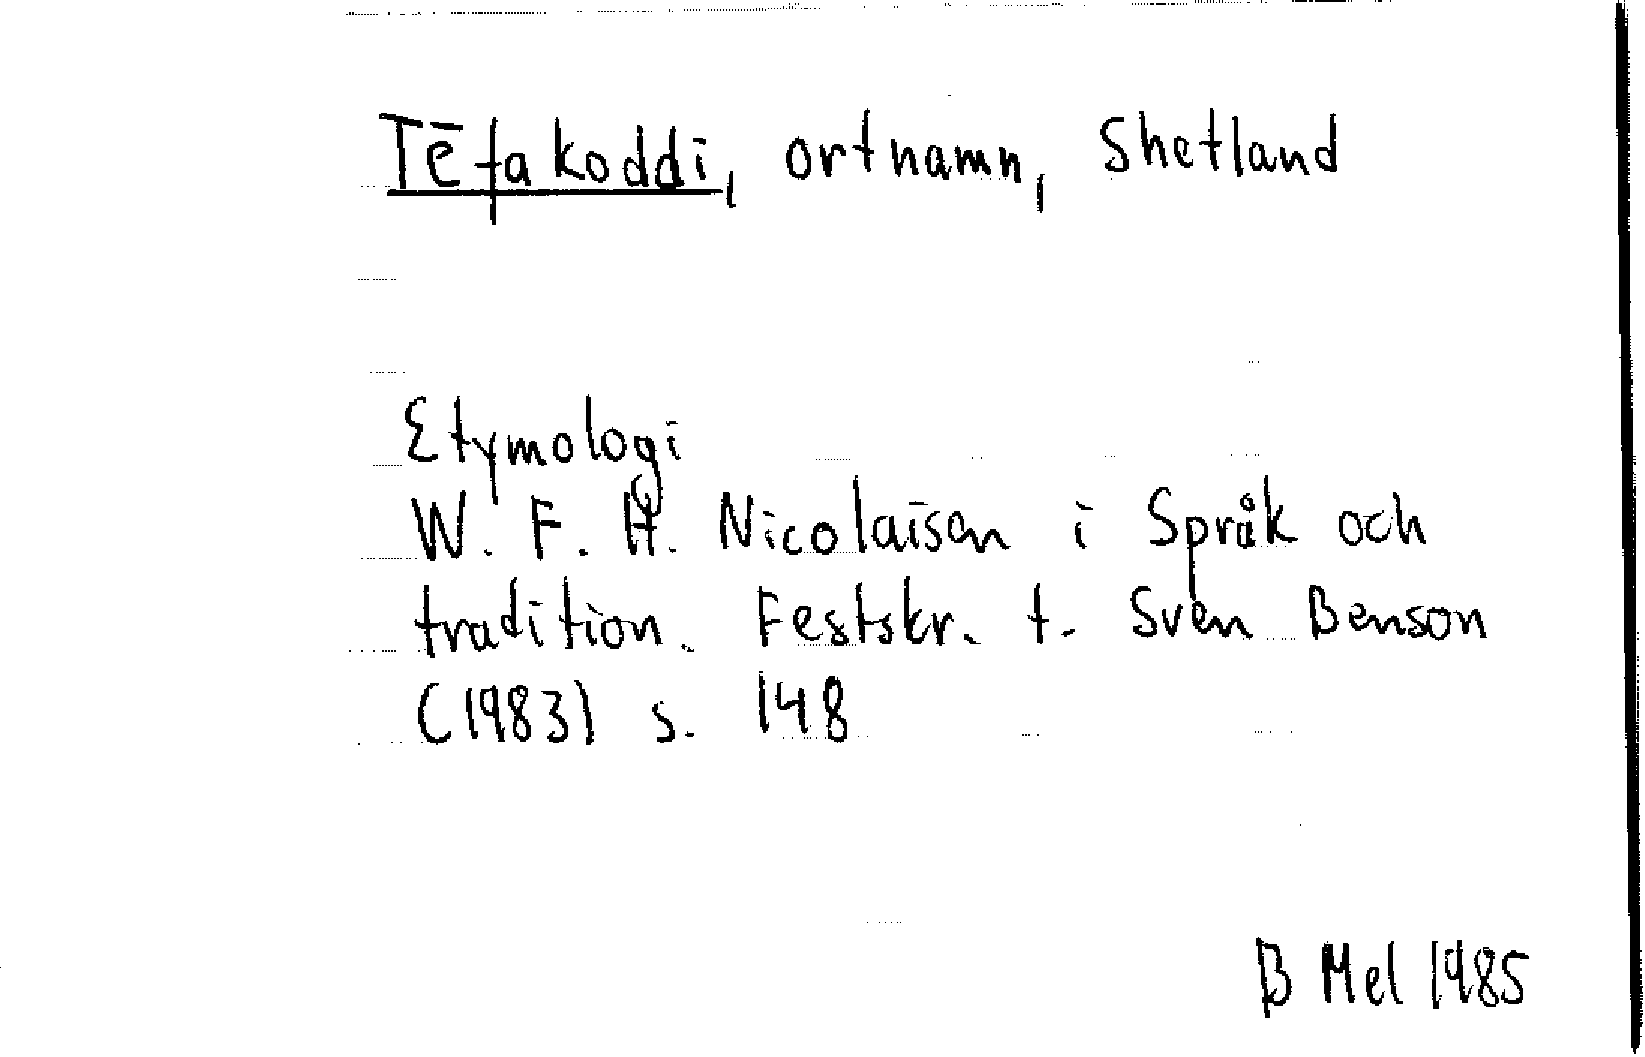 Tēfakoddi, ortnamn, Shetland
Etymologi
W. F. H. Nicolaisen i Språk och
tradition. Festskr. t. Sven Benson
(1983) s. 148
B Mel 1985